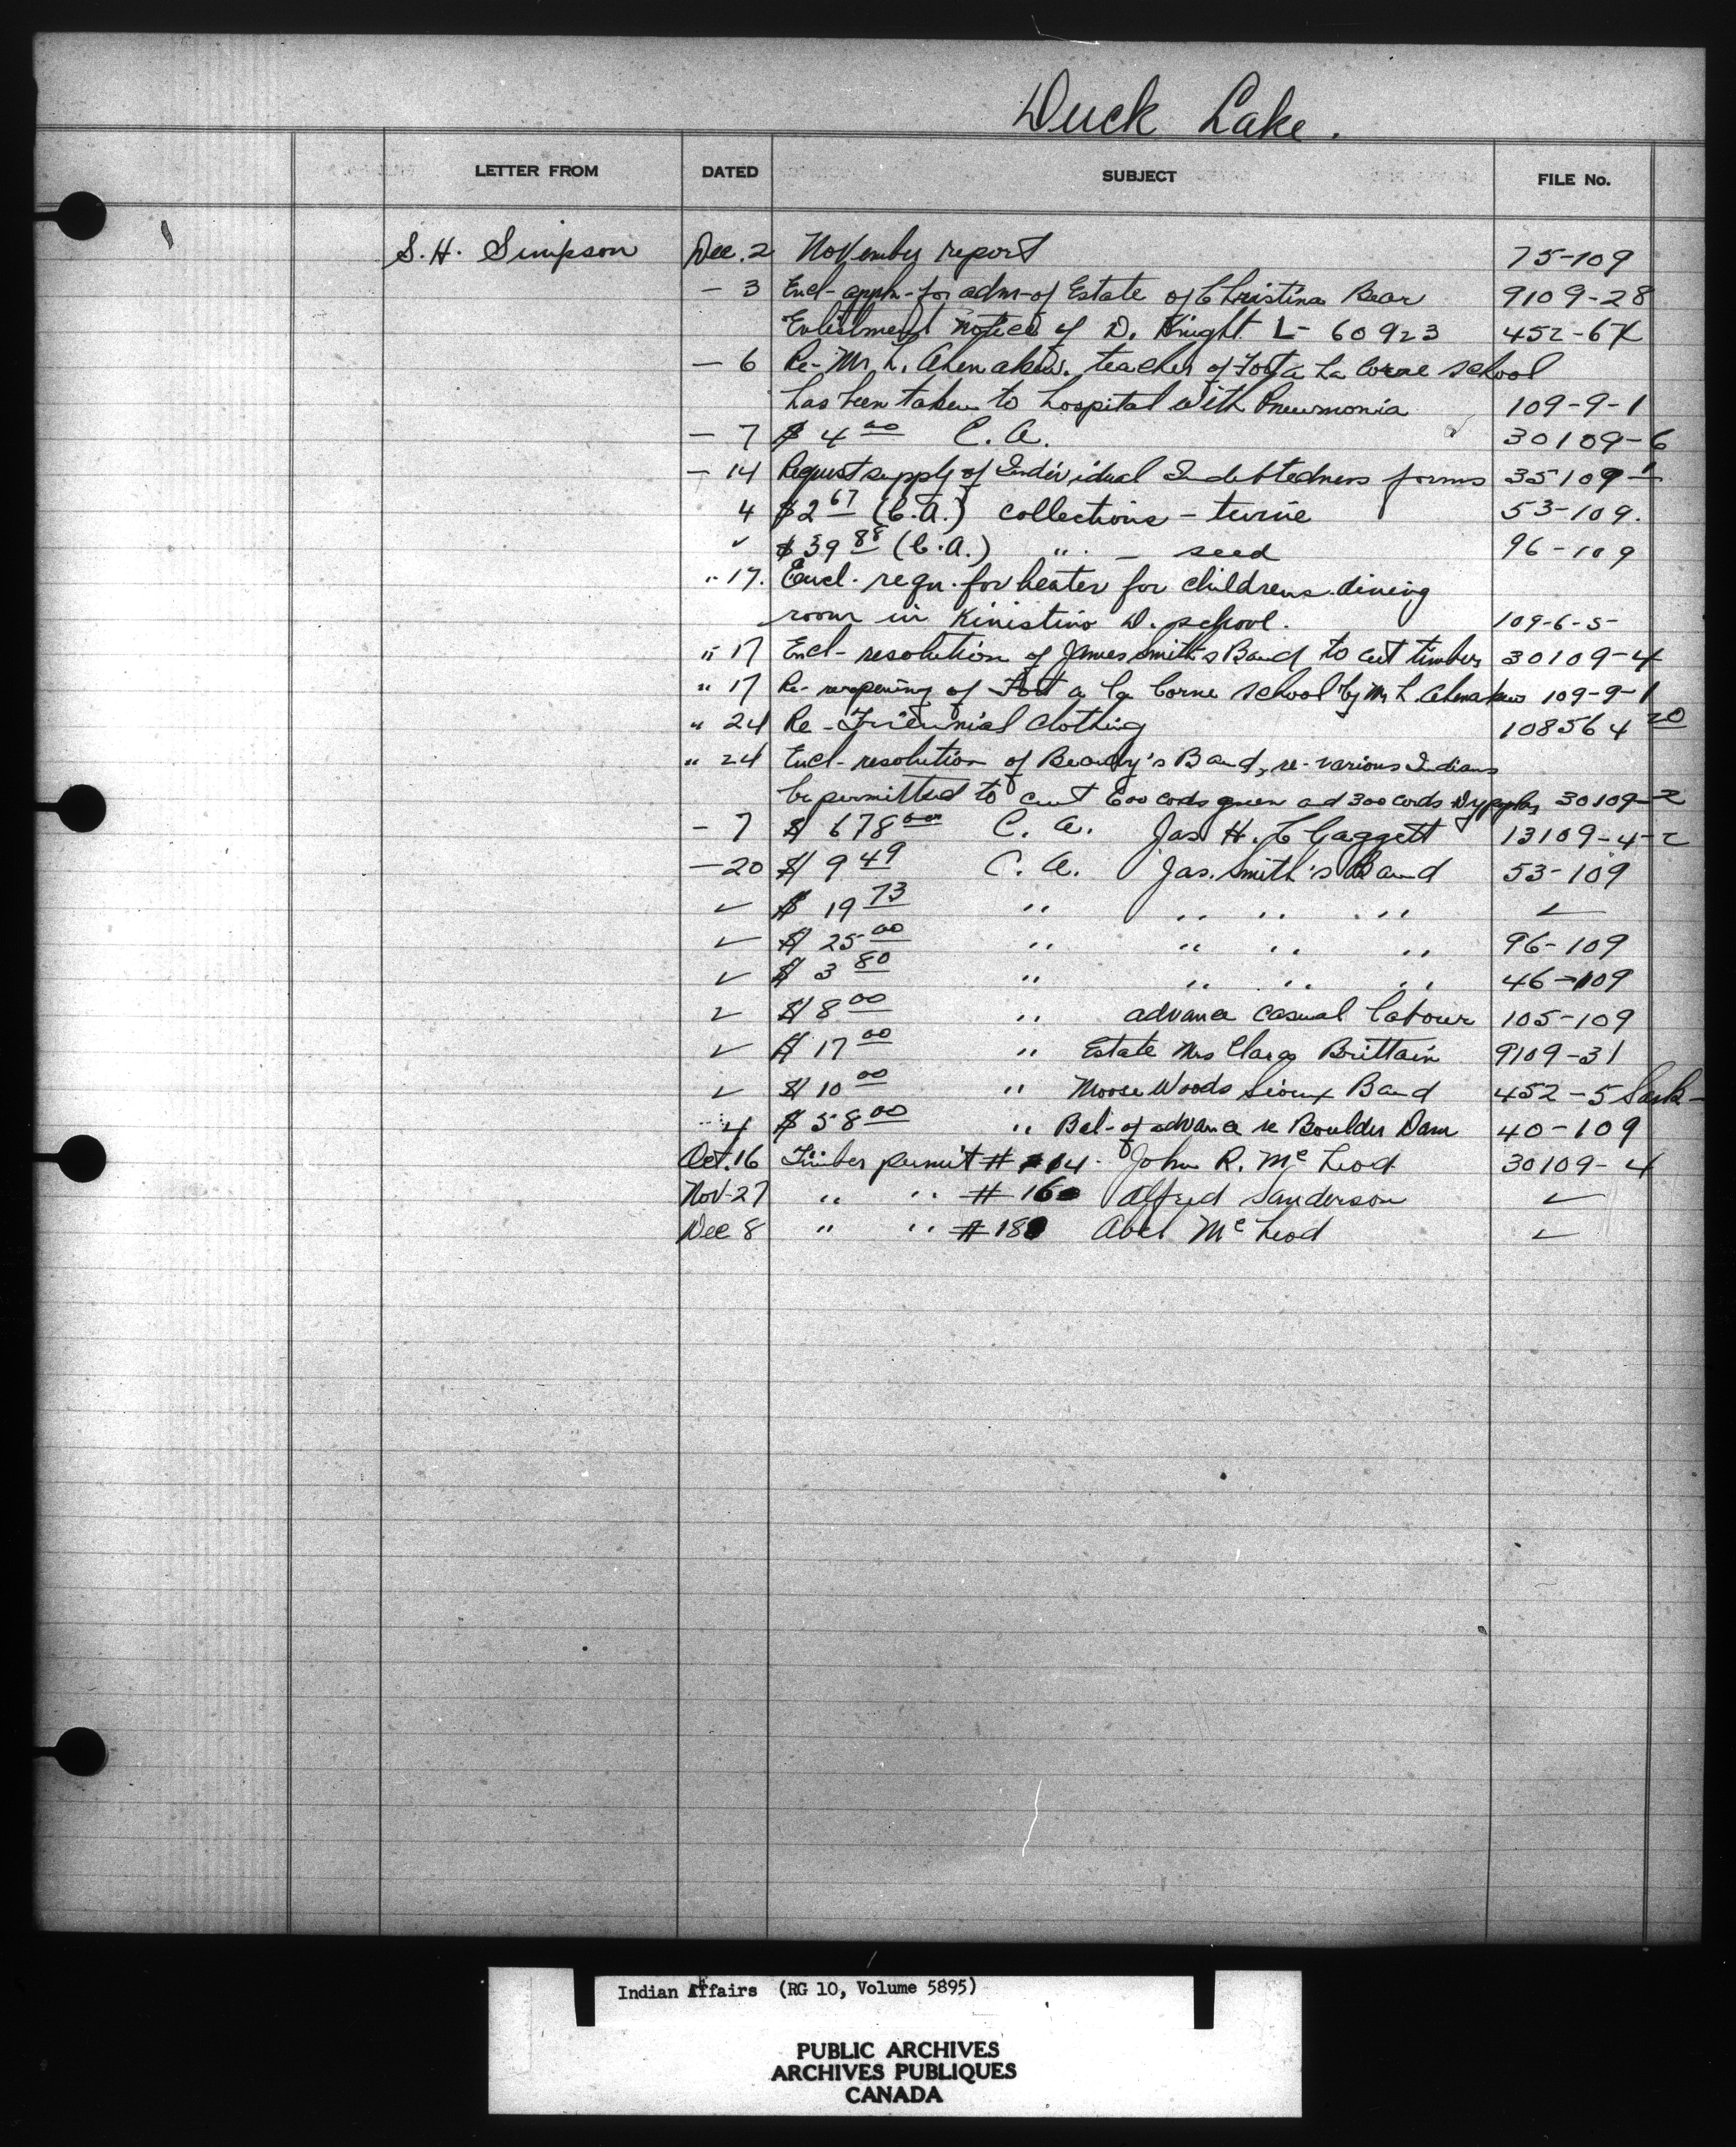 Duck Lake.
LETTER FROM DATED SUBJECT FILE No.
S. H. Simpson Dec. 2 November report 75-109
- 3 Encl- appln- for adm- of Estate of Christina Bear 9109-28
Enlistment notice of D. Knight L- 60923 452-6X
- 6 Re- Mr. L. Ahenakew. teacher of Fort a La Corne school
has been taken to hospital with Pneumonia 109-9-1
- 7 $4 00 C. A. 30109-6
- 14 Request supply of Individual Indebtedness forms 35109-1
4 $2 67 (C.A.) collections - twine 53-109.
✓ $39 88 (C.A.) " - seed 96-109
" 17. Encl- reqn. for heater for childrens dining
room in Kinistino D. school. 109-6-5-
" 17 Encl- resolution of James Smith's Band to cut timber 30109-4
" 17 Re- reopening of Fort a la Corne school by Mr L. Ahenakew 109-9-1
" 24 Re- Triennial Clothing 108564 20
" 24 Encl- resolution of Beardy's Band, re- various Indians
be permitted to cut 600 cods green and 300 cords dry 30109-2
- 7 $678 00 C. A. Jas H. 13109-4-2
- 20 $9 49 C. A. Jas. Smith's Band 53-109
✓ $19 73 " " " " ✓
✓ $25 00 " " " " 96-109
✓ $3 80 " " " " 46-109
✓ $8 00 " advance casual labour 105-109
✓ $17 00 " Estate Mrs Clara Brittain 9109-31
✓ $10 00 " Moose Woods Sioux Band 452-5 Sask-
4 $58 00 " Bal- of advance re Boulder Dam 40-109
Oct. 16 Timber permit # 14 - John R. McLeod 30109-4
Nov- 27 " " # 16 Alfred Sanderson ✓
Dec 8 " " # 18 Abel McLeod ✓
Indian Affairs (RG 10, Volume 5895)
PUBLIC ARCHIVES
ARCHIVES PUBLIQUES
CANADA